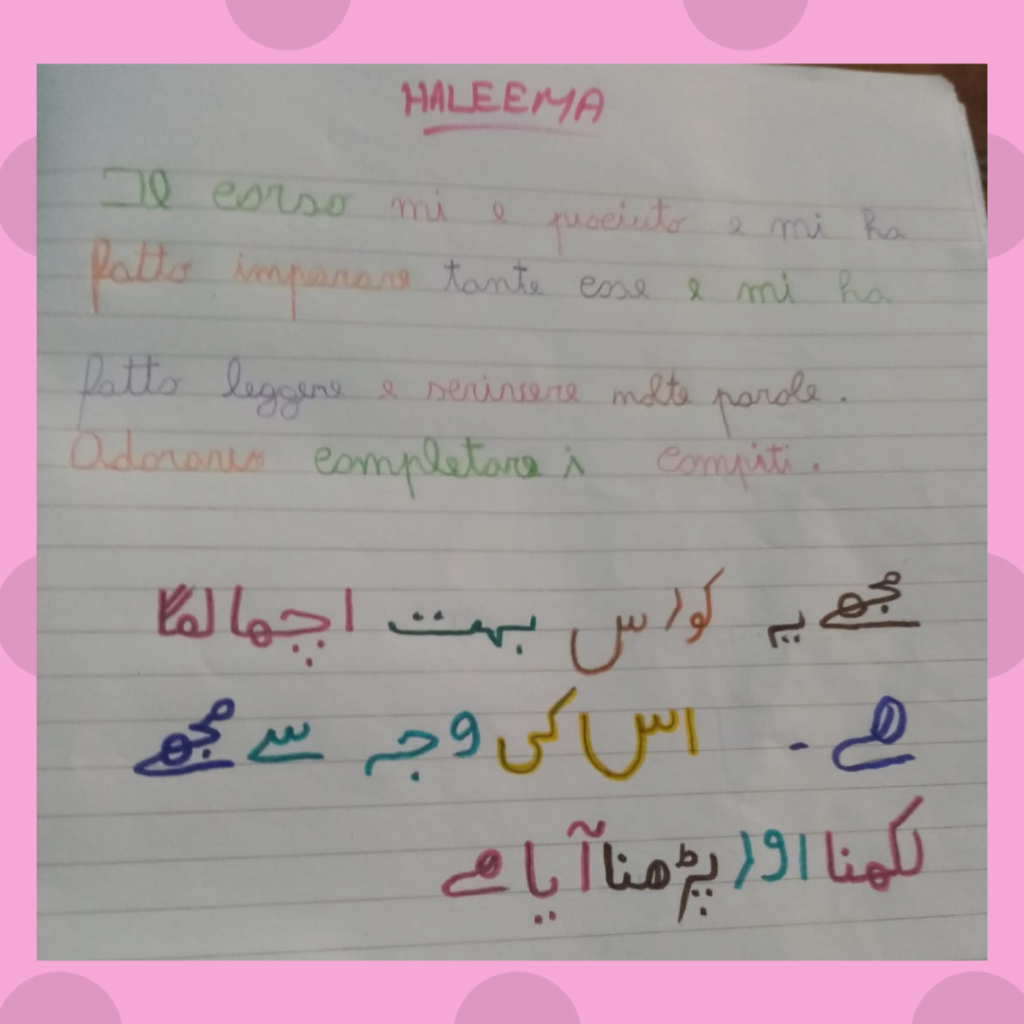 HALEEMA
Il corso mi e piaciuto e mi ha
fatto imparare tante cose e mi ha
fatto leggere e scrivere molte parole.
Adoravo completare i compiti.
مجھے یہ کورس بہت اچھا لگا
ہے ۔ اس کی وجہ سے مجھے
لکھنا اور پڑھنا آیا ہے